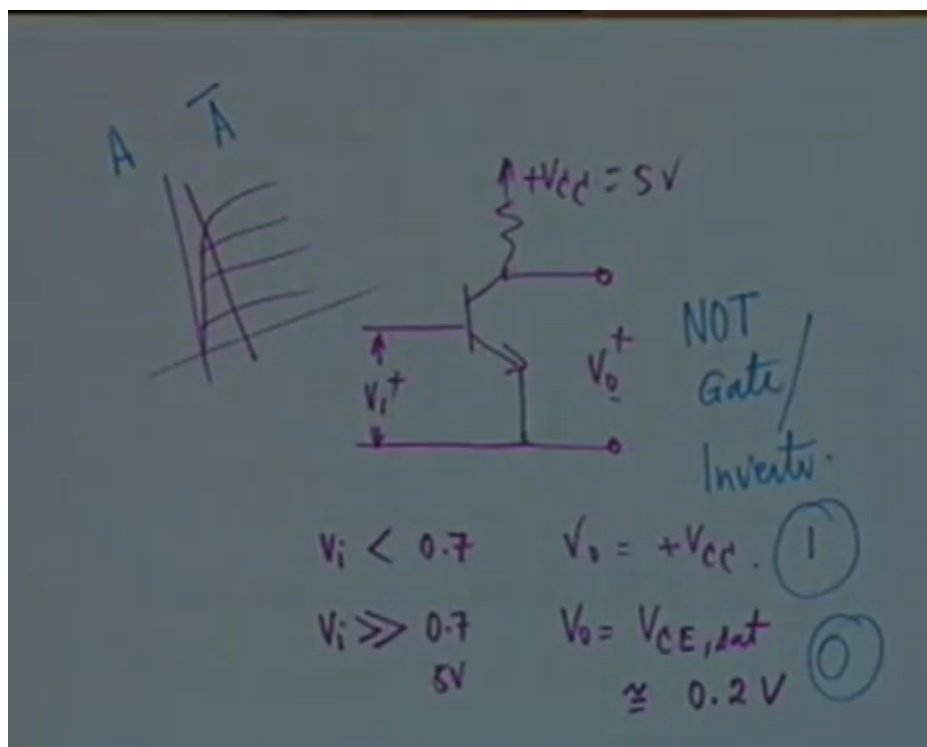 A A̅
+VCC = 5V
Vi +
Vo +
-
NOT
Gate/
Inverter.
Vi < 0.7 Vo = +VCC. 1
Vi >> 0.7 Vo = VCE,sat 0
5V ≅ 0.2 V